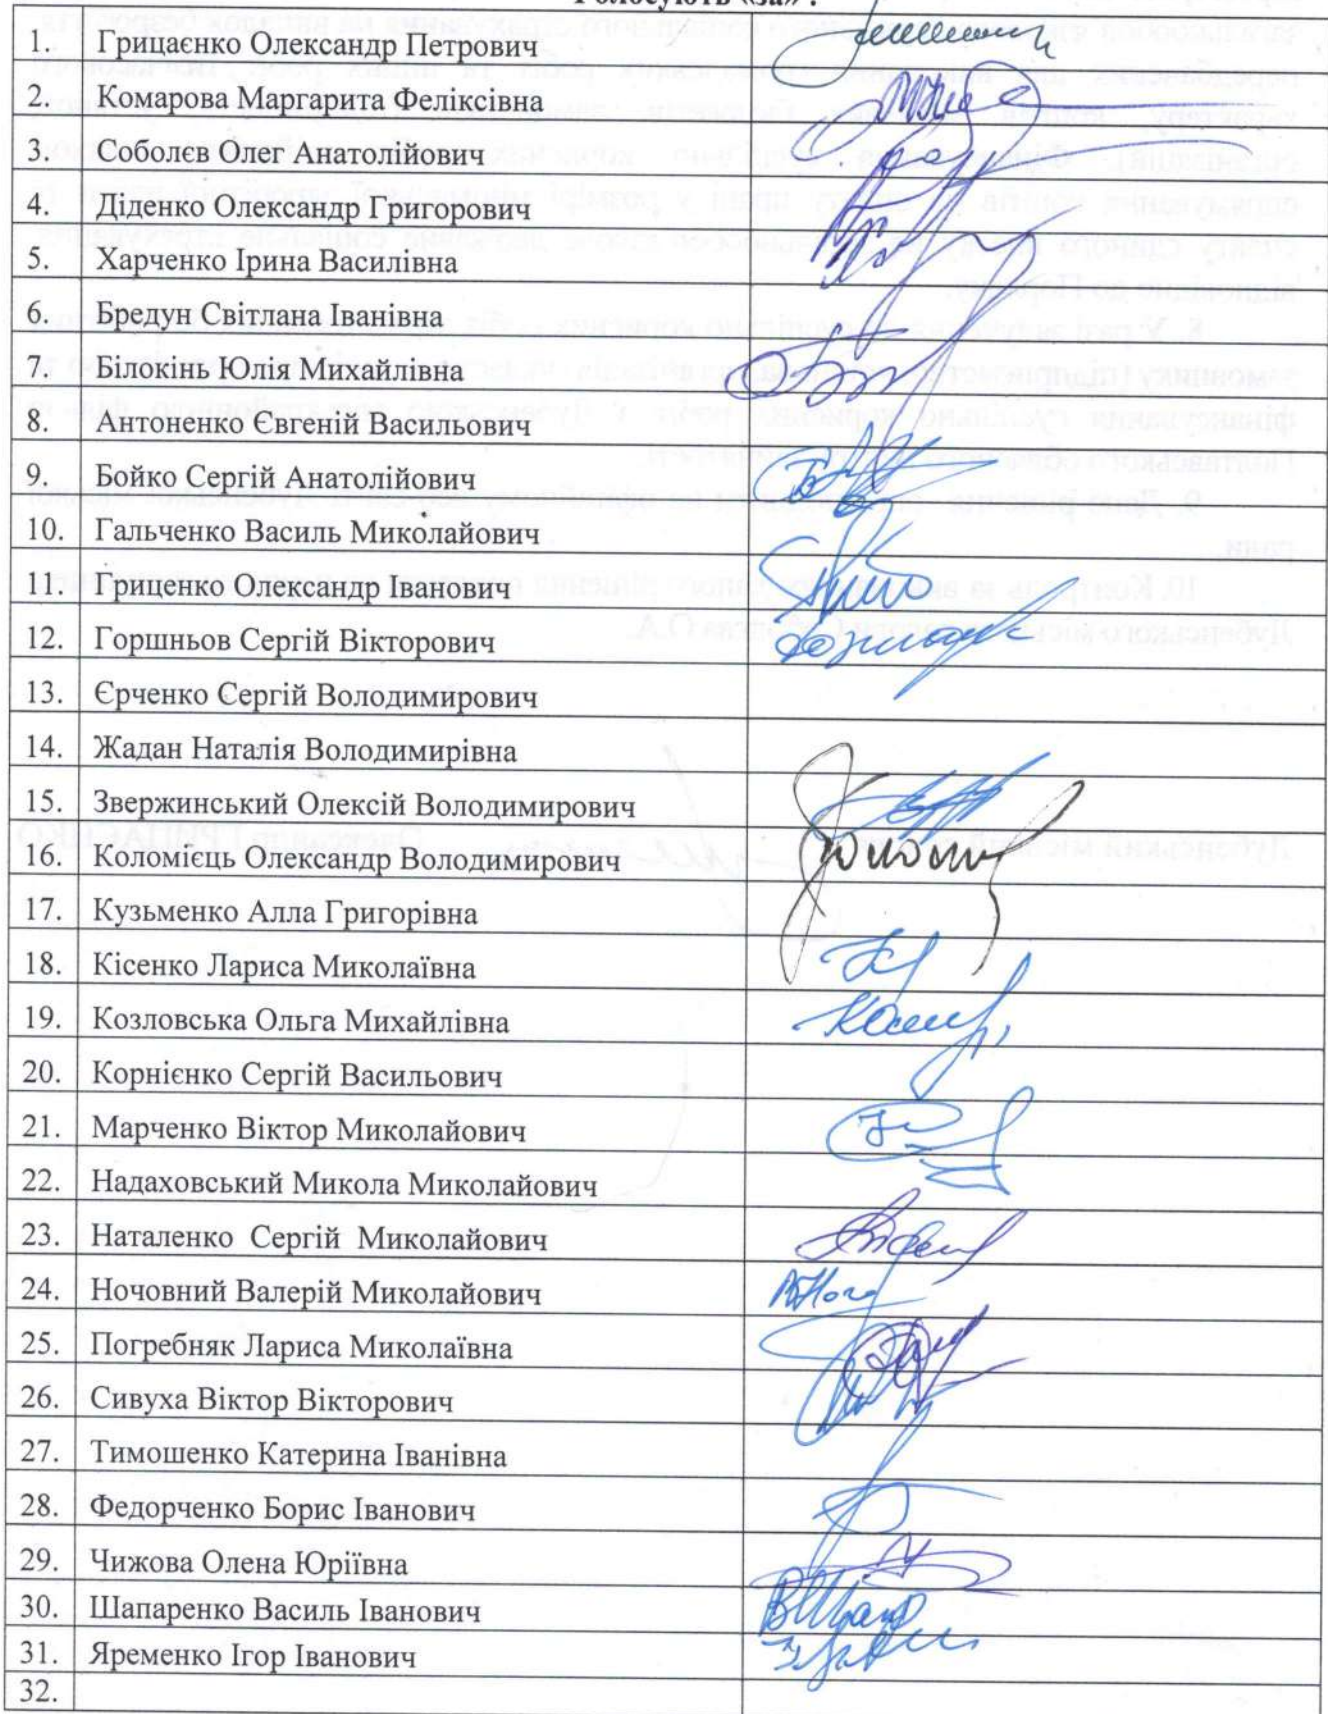 Голосують «за» :
1. Грицаєнко Олександр Петрович
2. Комарова Маргарита Феліксівна
3. Соболєв Олег Анатолійович
4. Діденко Олександр Григорович
5. Харченко Ірина Василівна
6. Бредун Світлана Іванівна
7. Білокінь Юлія Михайлівна
8. Антоненко Євгеній Васильович
9. Бойко Сергій Анатолійович
10. Гальченко Василь Миколайович
11. Гриценко Олександр Іванович
12. Горшньов Сергій Вікторович
13. Єрченко Сергій Володимирович
14. Жадан Наталія Володимирівна
15. Звержинський Олексій Володимирович
16. Коломієць Олександр Володимирович
17. Кузьменко Алла Григорівна
18. Кісенко Лариса Миколаївна
19. Козловська Ольга Михайлівна
20. Корнієнко Сергій Васильович
21. Марченко Віктор Миколайович
22. Надаховський Микола Миколайович
23. Наталенко Сергій Миколайович
24. Ночовний Валерій Миколайович
25. Погребняк Лариса Миколаївна
26. Сивуха Віктор Вікторович
27. Тимошенко Катерина Іванівна
28. Федорченко Борис Іванович
29. Чижова Олена Юріївна
30. Шапаренко Василь Іванович
31. Яременко Ігор Іванович
32.